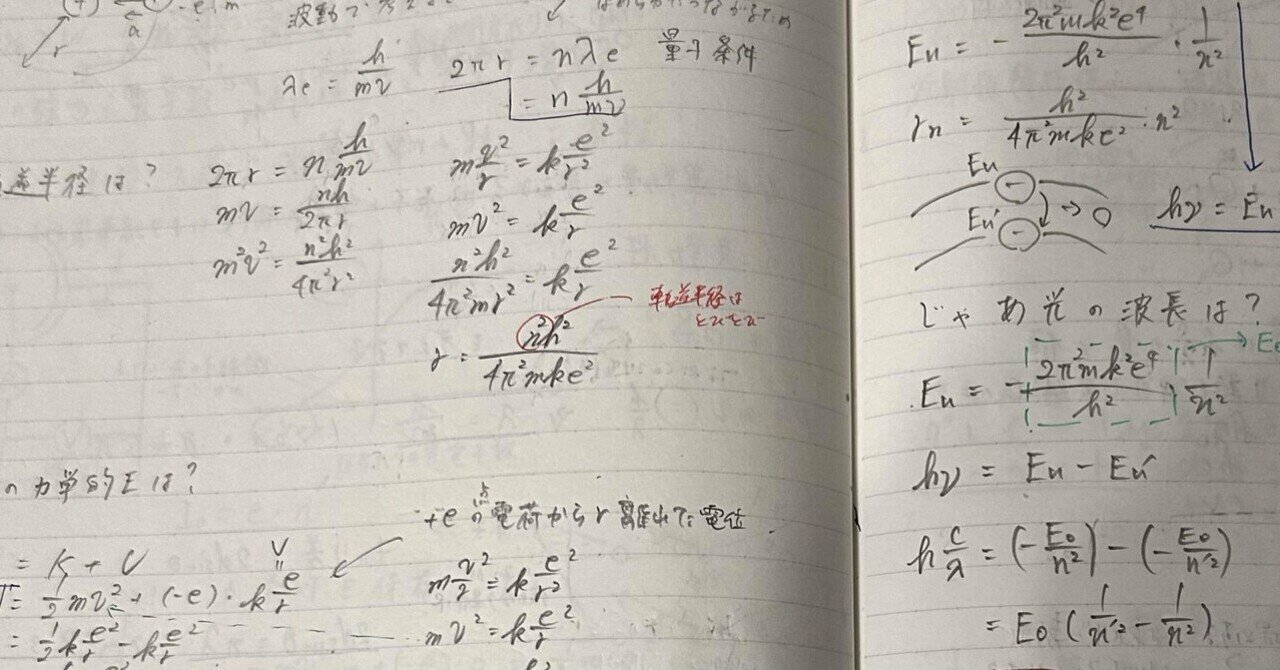 λe = h/mv
2πr = nλe 量子条件
= n h/mv
半径は?
2πr = n h/mv
mv = nh/2πr
m²v² = n²h²/4π²r²
m v²/r = k e²/r²
mv² = k e²/r
n²h²/4π²mr² = k e²/r
r = n²h²/4π²mke²
軌道半径は
とびとび
の力学的Eは?
+eの点電荷からr離れた電位
= K + U
V
=
= 1/2 mv² + (-e)・k e/r
= 1/2 k e²/r - k e²/r
m v²/r = k e²/r²
mv² = k e²/r
En = - 2π²mk²e⁴/h² ・ 1/n²
rn = h²/4π²mke² ・ n²
En
En'
hν = En
じゃあ光の波長は?
En = - 2π²mk²e⁴/h² 1/n²
hν = En - En'
h c/λ = (- E₀/n²) - (- E₀/n'²)
= E₀ (1/n'² - 1/n²)